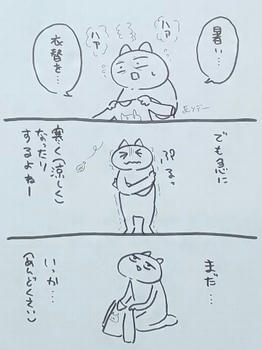 暑い…
ハァ
ハァ
衣替を…
でも急に
ぶるっ
寒く(涼しく)
なったり
するよねー
まだ…
いっか…
(めんどくさい)